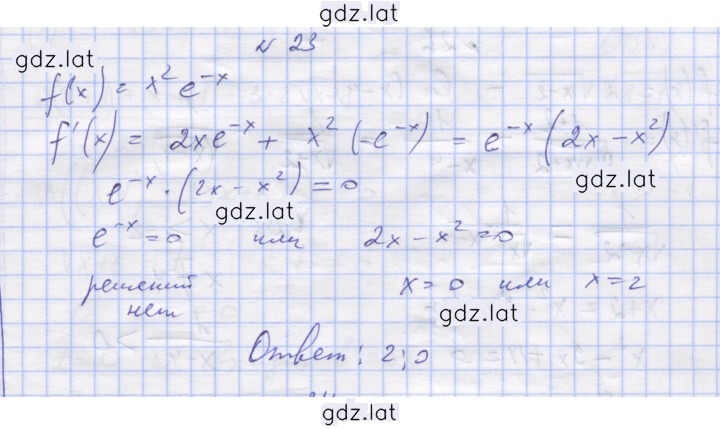 gdz.lat
№ 23
gdz.lat
f(x) = x² e⁻ˣ
f'(x) = 2xe⁻ˣ + x² (-e⁻ˣ) = e⁻ˣ (2x - x²)
gdz.lat
e⁻ˣ · (2x - x²) = 0
gdz.lat
e⁻ˣ = 0 или 2x - x² = 0
решений x = 0 или x = 2
нет
gdz.lat
Ответ: 2; 0
gdz.lat